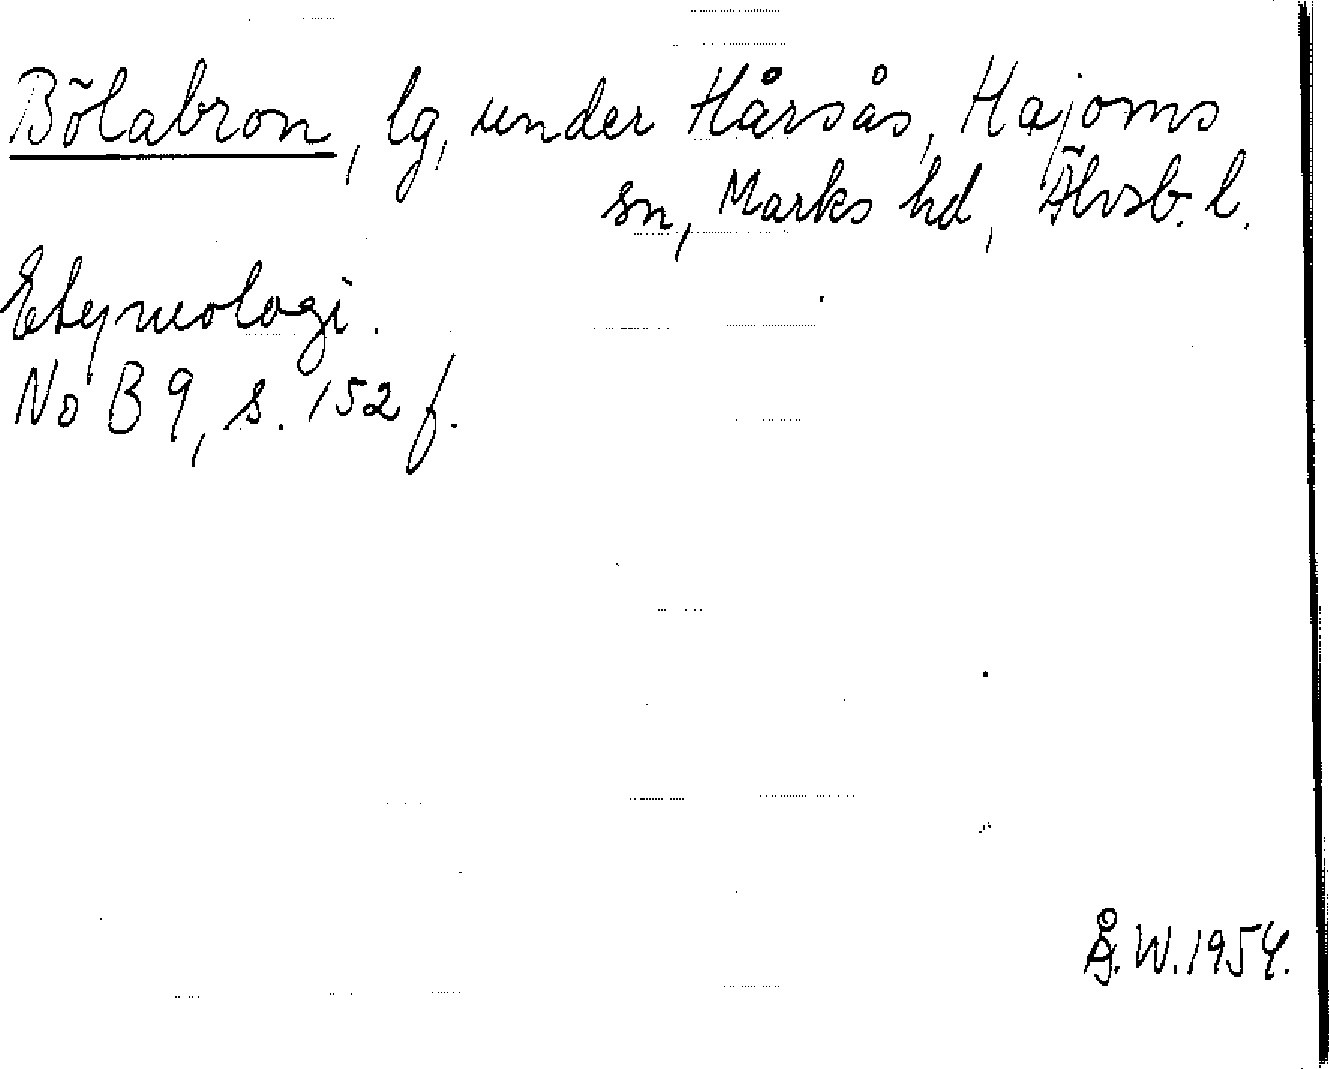 Bölabron, lg, under Hårsås, Hajoms
sn, Marks hd, Älvsb. l.
Etymologi.
No B 9, s. 152 f.
Å. W. 1954.